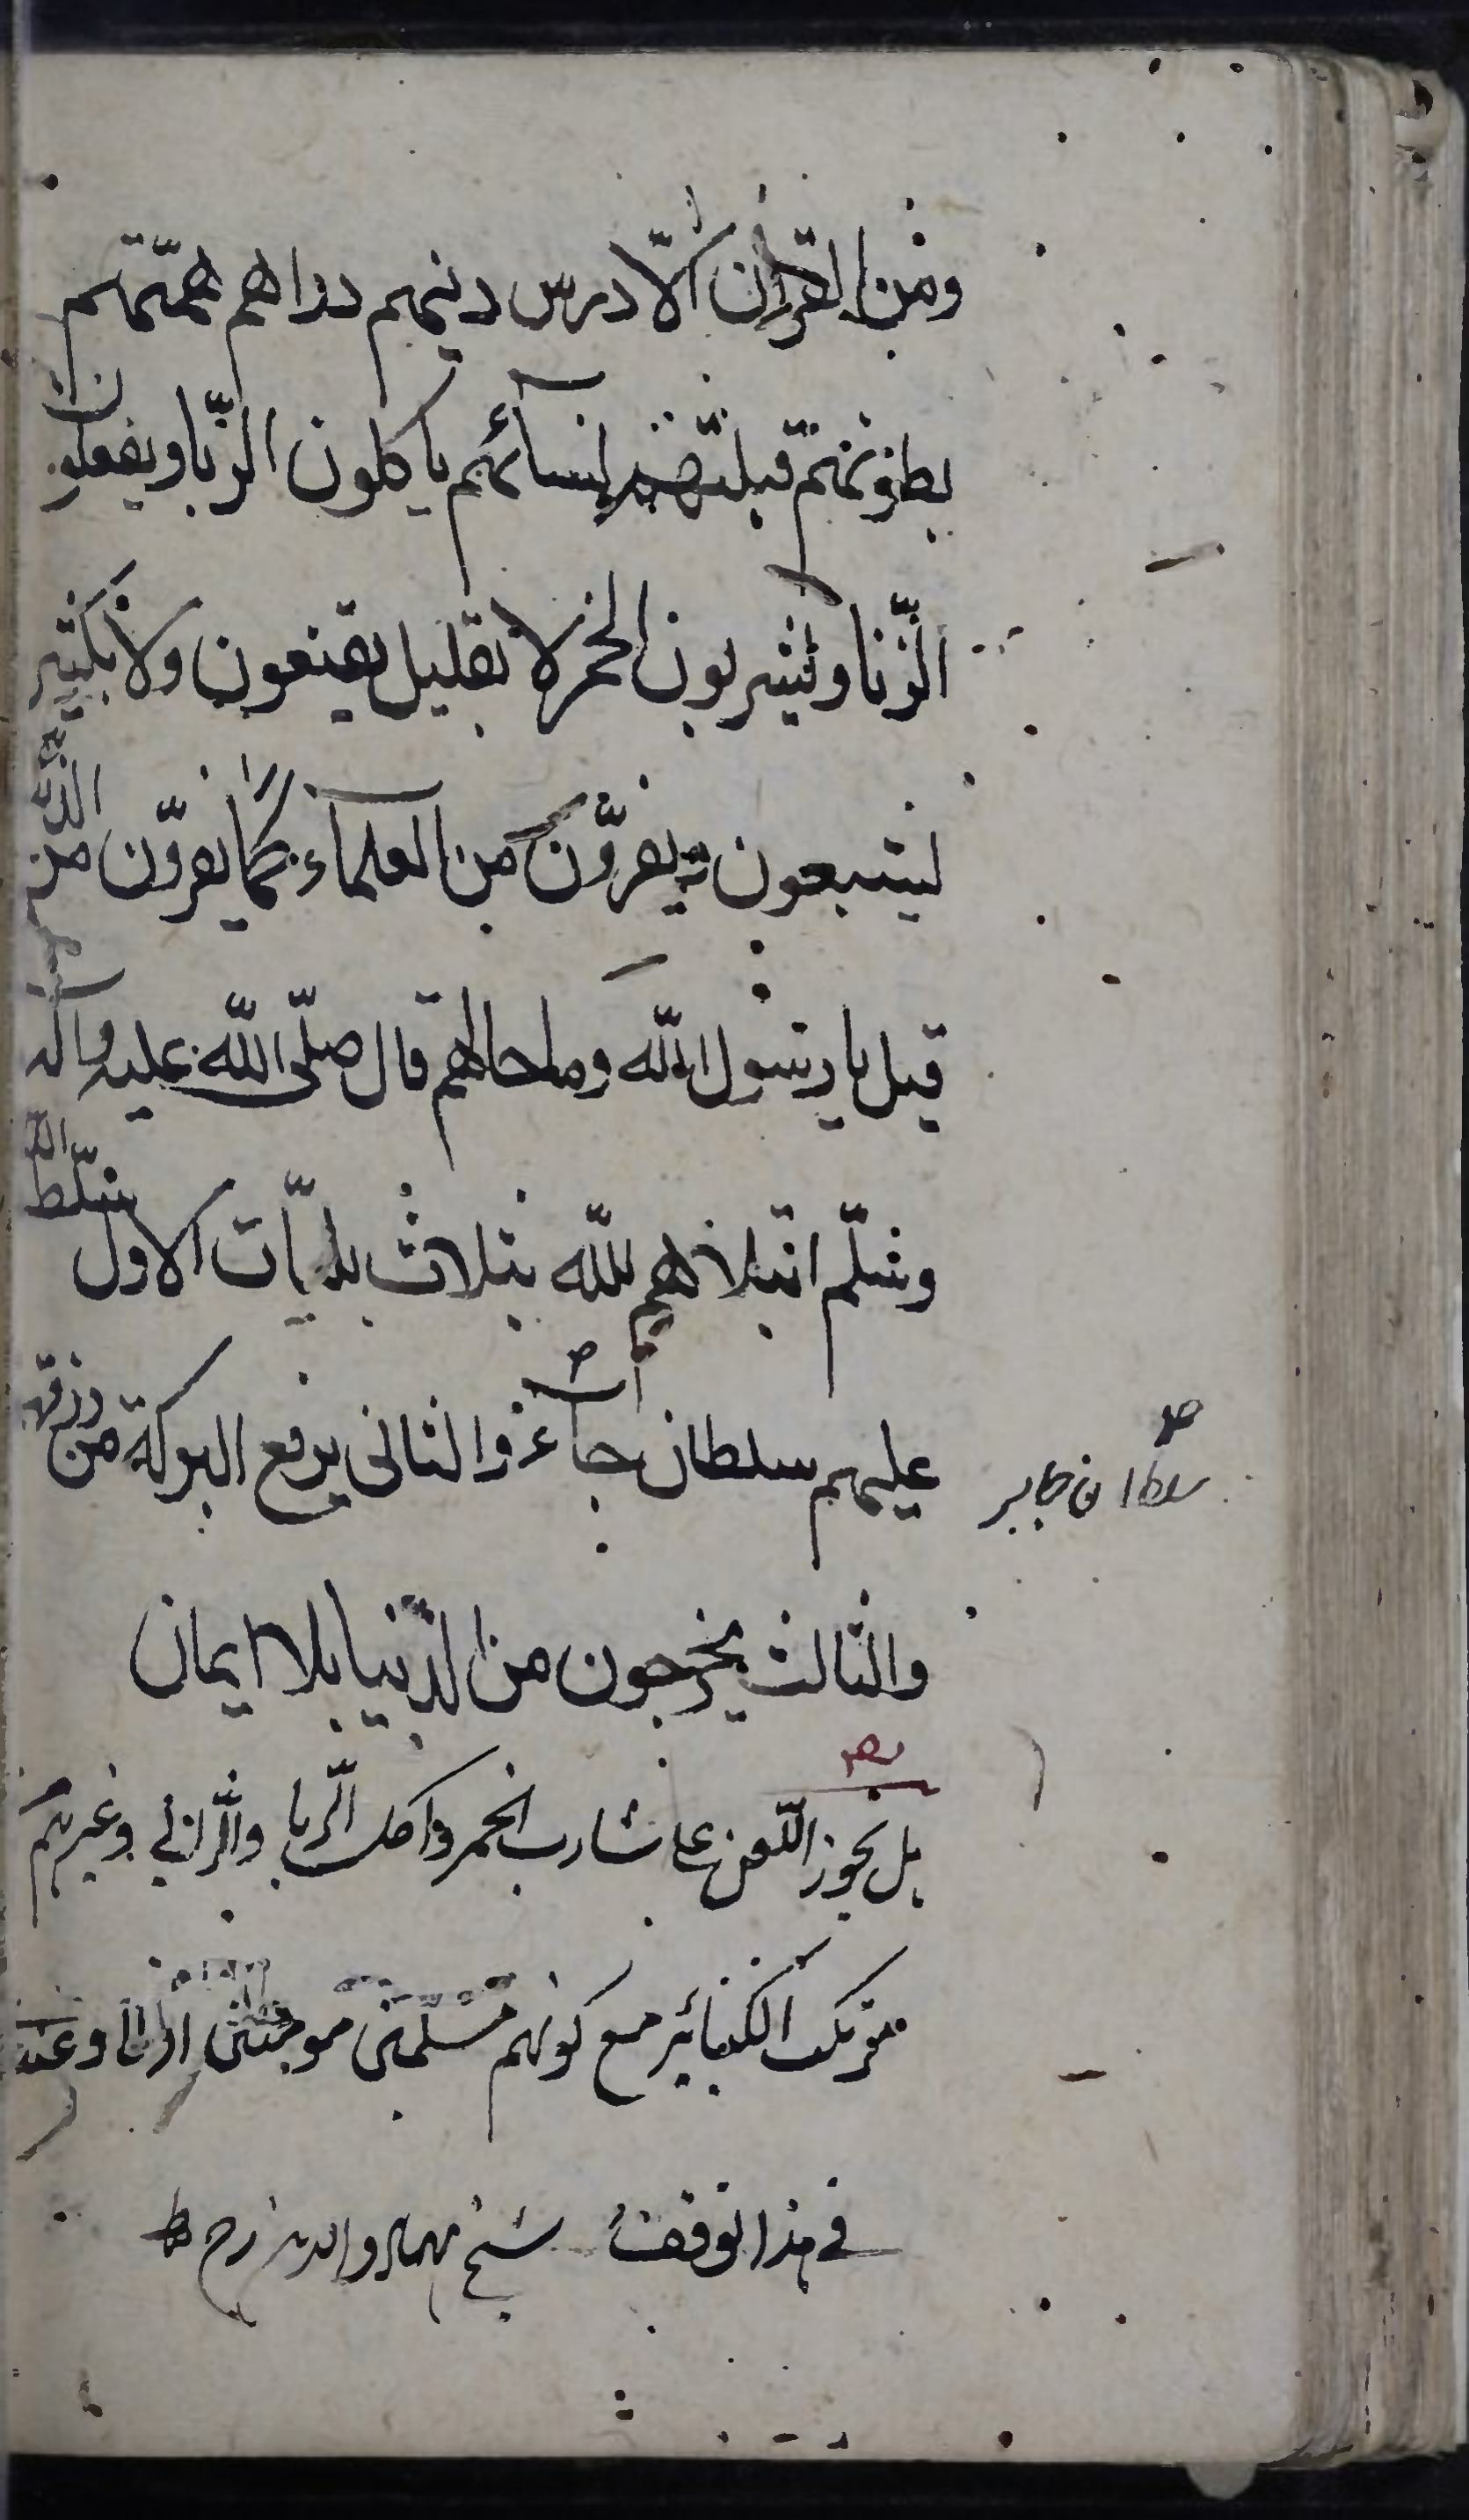 ومن القرآن الّا درس دينهم دراهم همّتهم
بطونهم قبلتهم نسآئهم ياكلون الرّبا ويفعلون
الزّنا ويشربون الخمر لا بقليل يقنعون ولا بكثير
ليشبعون يفرّون من العلماء كما يفرّون من الذئب
قيل يا رسول الله وما حالهم قال صلّى الله عليه وآله
وسلّم ابتلاهم الله بثلاث بليّات الاول يسلّط الله
عليهم سلطان جآئر والثانى يرفع البركة من رزقهم
سلطان جابر
والثالث يخرجون من الدّنيا بلا ايمان
هل يجوز اللّعن على شارب الخمر واكل الرّبا والزّانى وغيرهم
من الكبائر مع كونهم مسلمين مومنين ام لا وعند
فى هذا توقف شيخ بهاء الدين رح